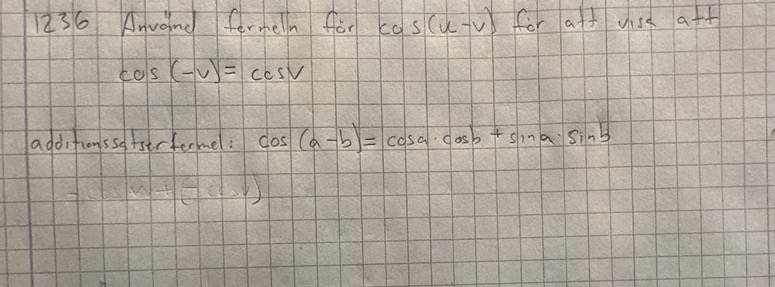 1236 Använd formeln för cos(u-v) för att visa att
cos (-v) = cosv
additionssatser formel: cos (a-b) = cosa · cosb + sina · sinb